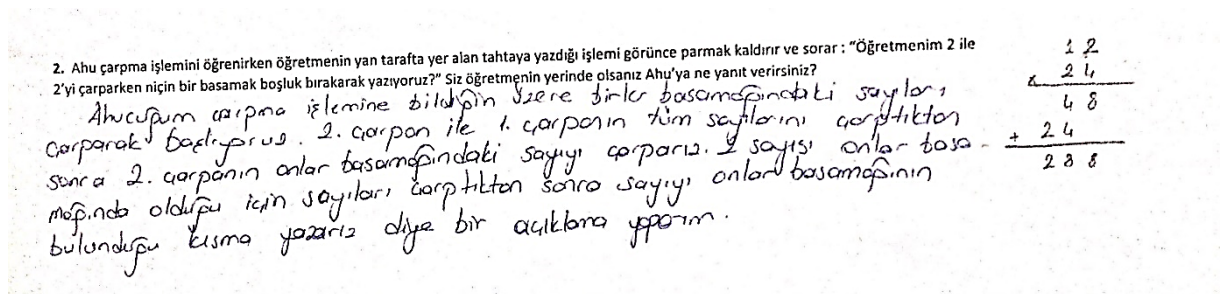 2. Ahu çarpma işlemini öğrenirken öğretmenin yan tarafta yer alan tahtaya yazdığı işlemi görünce parmak kaldırır ve sorar : "Öğretmenim 2 ile
2'yi çarparken niçin bir basamak boşluk bırakarak yazıyoruz?" Siz öğretmenin yerinde olsanız Ahu'ya ne yanıt verirsiniz?
Ahucuğum çarpma işlemine bildiğin üzere birler basamağındaki sayıları
çarparak başlıyoruz. 2. çarpan ile 1. çarpanın tüm sayılarını çarptıktan
sonra 2. çarpanın onlar basamağındaki sayıyı çarparız. 2 sayısı onlar basa-
mağında olduğu için sayıları çarptıktan sonra sayıyı onlar basamağının
bulunduğu kısma yazarız diye bir açıklama yaparım.
12
x 24
48
+ 24
288